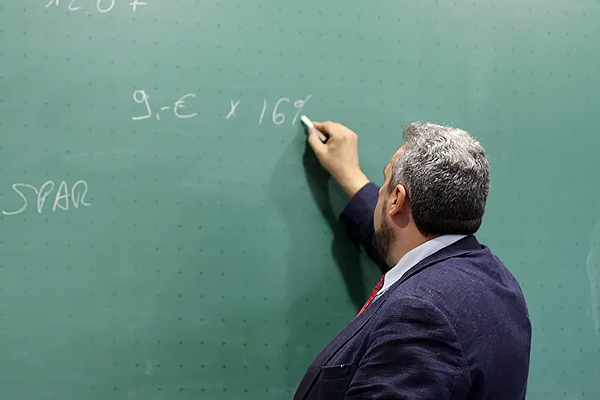 9,-€ x 16%
SPAR